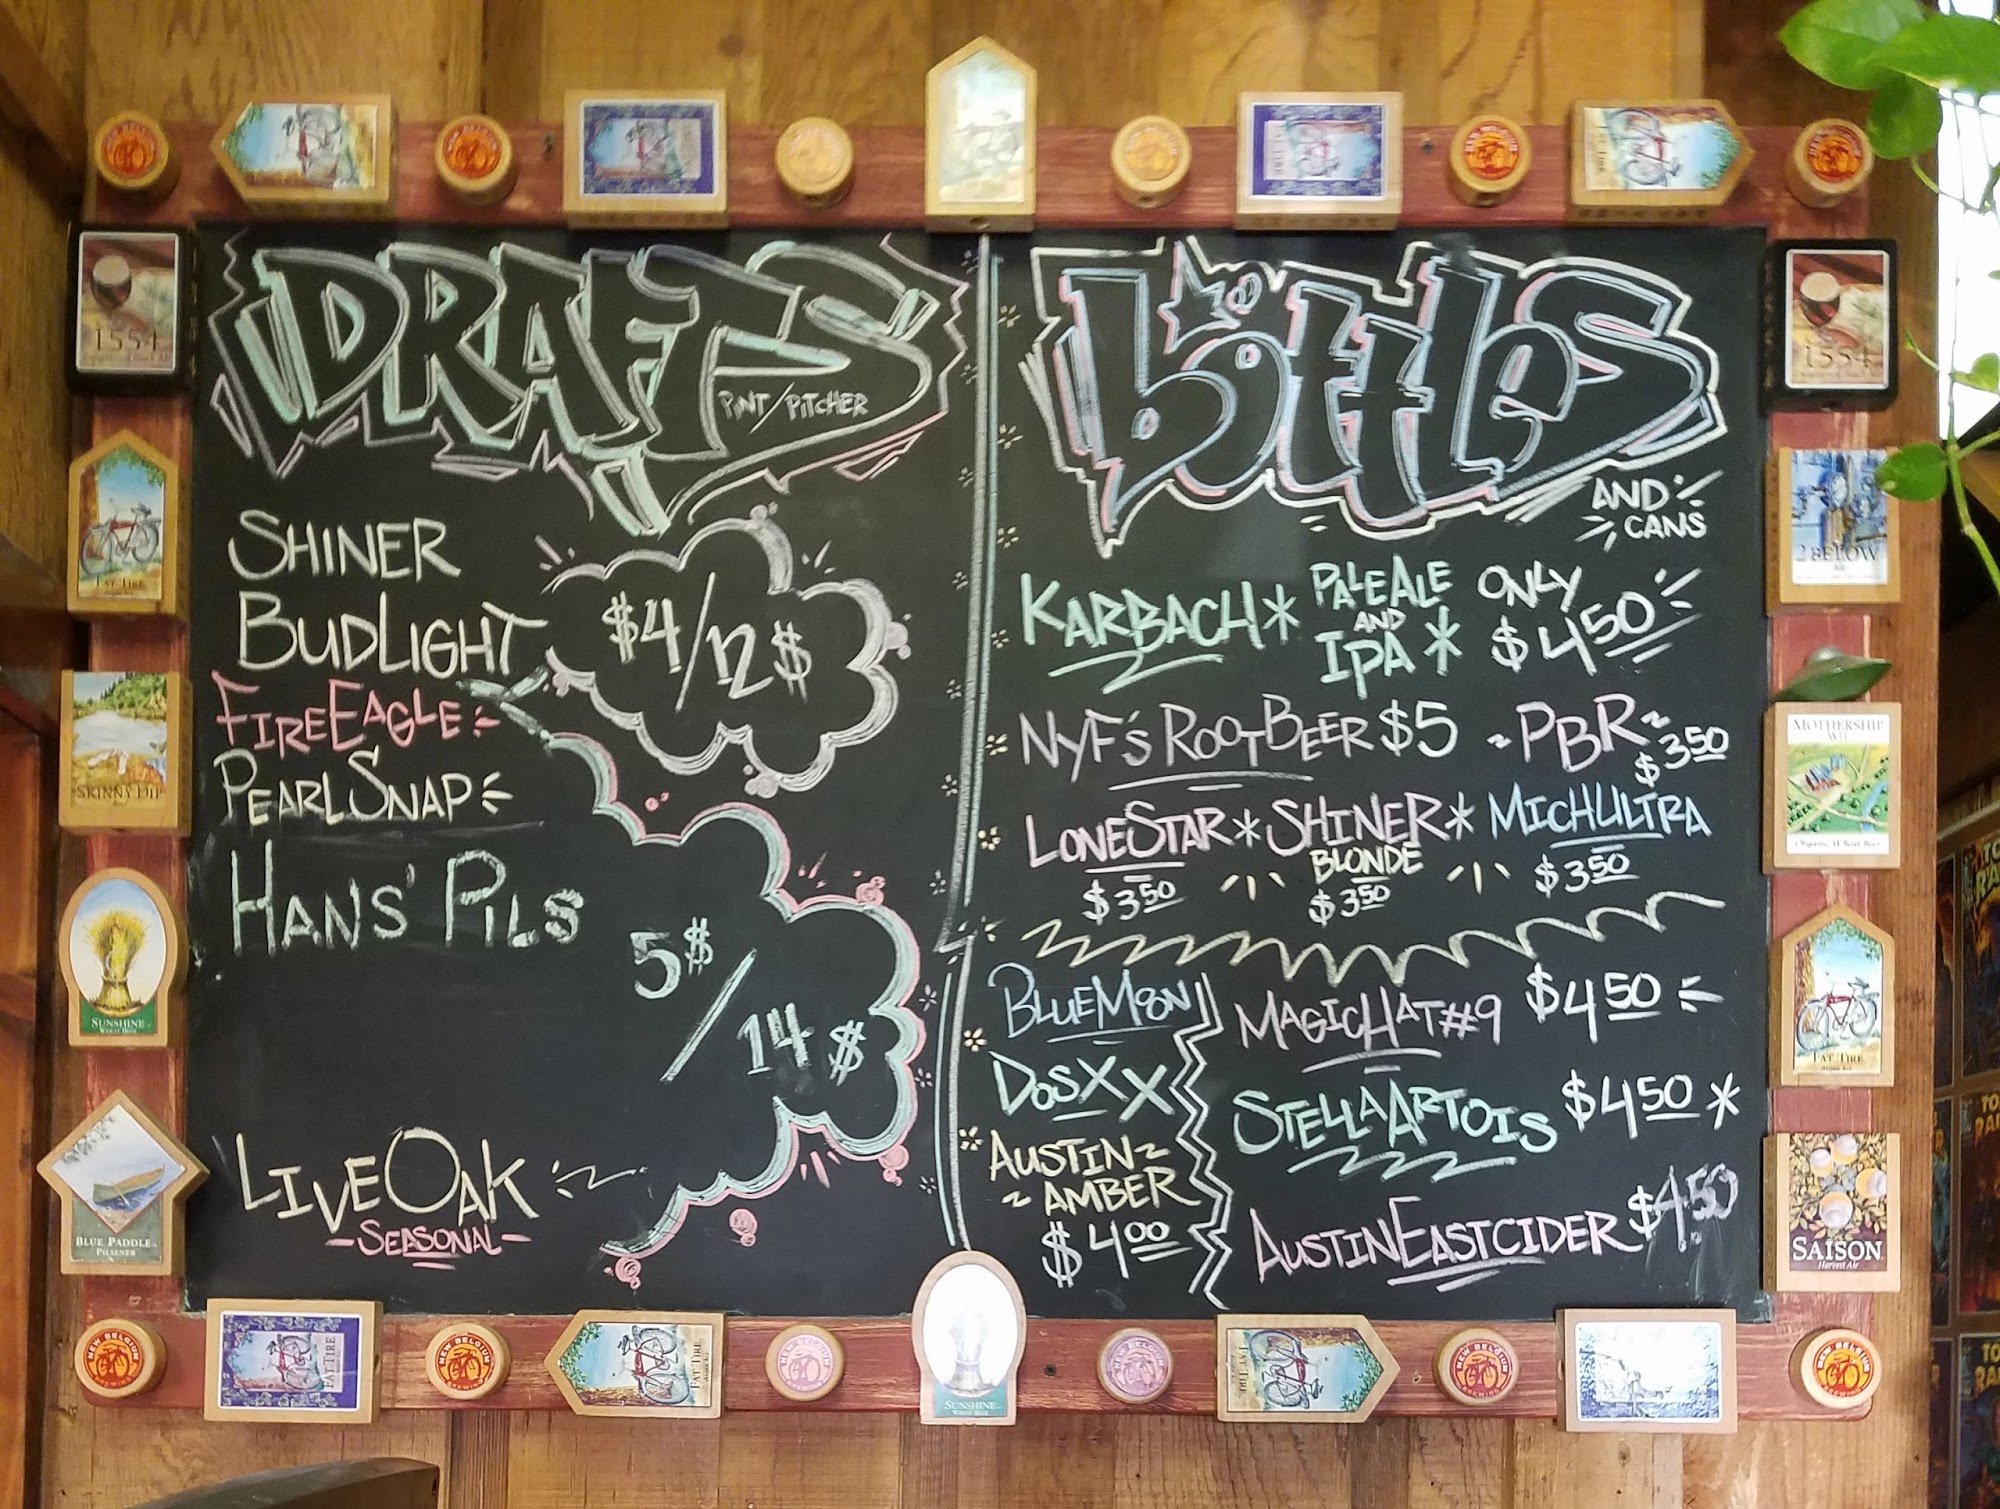 DRAFTS
PINT/PITCHER
SHINER
BUDLIGHT
$4/12$
FIREEAGLE
PEARLSNAP
HANS' PILS
5$/14$
LIVEOAK
SEASONAL
BOTTLES
AND
CANS
KARBACH* PALE ALE AND IPA * ONLY $4.50
NYF'S ROOTBEER $5 ~PBR~ $3.50
LONESTAR * SHINER * MICHULTRA
BLONDE
$3.50 $3.50 $3.50
BLUEMOON
DOSXX
AUSTIN~
~AMBER
$4.00
MAGICHAT#9 $4.50
STELLAARTOIS $4.50*
AUSTINEASTCIDER $4.50
1554
FAT TIRE
SKINNY DIP
SUNSHINE
WHEAT BEER
BLUE PADDLE
PILSENER
1554
2 BELOW
MOTHERSHIP
WIT
FAT TIRE
SAISON
Harvest Ale
NEW BELGIUM
BREWING
FAT TIRE
NEW BELGIUM
BREWING
FAT TIRE
SUNSHINE
WHEAT BEER
FAT TIRE
NEW BELGIUM
BREWING
NEW BELGIUM
BREWING